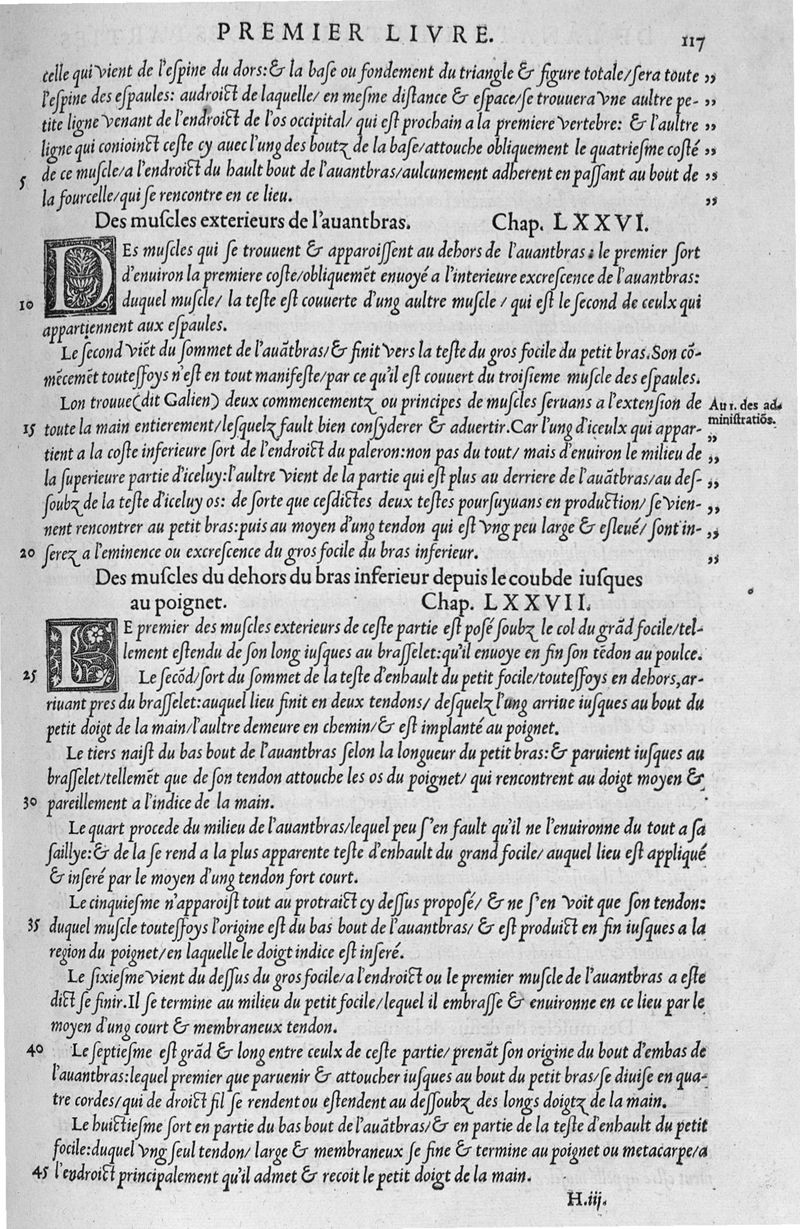 PREMIER LIVRE. 117
celle qui vient de l'eſpine du dors:& la baſe ou fondement du triangle & figure totale/ſera toute ,,
l'eſpine des eſpaules: audroict de laquelle/ en meſme diſtance & eſpace/ſe trouuera vne aultre pe- ,,
tite ligne venant de l'endroict de l'os occipital/ qui eſt prochain a la premiere vertebre: & l'aultre ,,
ligne qui conioinct ceſte cy auec l'ung des boutz de la baſe/attouche obliquement le quatrieſme coſté ,,
de ce muſcle/a l'endroict du hault bout de l'auantbras/aulcunement adherent en paſſant au bout de ,,
5 la fourcelle/qui ſe rencontre en ce lieu. ,,
Des muſcles exterieurs de l'auantbras. Chap. LXXVI.
DEs muſcles qui ſe trouuent & apparoiſſent au dehors de l'auantbras: le premier ſort
d'enuiron la premiere coſte/obliquemēt enuoyé a l'interieure excreſcence de l'auantbras:
10 duquel muſcle/ la teſte eſt couuerte d'ung aultre muſcle / qui eſt le ſecond de ceulx qui
appartiennent aux eſpaules.
Le ſecond viēt du ſommet de l'auātbras/& finit vers la teſte du gros focile du petit bras.Son cō-
mēcemēt touteſſoys n'eſt en tout manifeſte/par ce qu'il eſt couuert du troiſieme muſcle des eſpaules.
Lon trouue(dit Galien) deux commencementz ou principes de muſcles ſeruans a l'extenſion de Au 1. des ad-
15 toute la main entierement/leſquelz fault bien conſyderer & aduertir.Car l'ung d'iceulx qui appar- miniſtratiōs.
tient a la coſte inferieure ſort de l'endroict du paleron:non pas du tout/ mais d'enuiron le milieu de ,,
la ſuperieure partie d'iceluy:l'aultre vient de la partie qui eſt plus au derriere de l'auātbras/au deſ- ,,
ſoubz de la teſte d'iceluy os: de ſorte que ceſdictes deux teſtes pourſuyuans en production/ ſe vien- ,,
nent rencontrer au petit bras:puis au moyen d'ung tendon qui eſt vng peu large & eſleué/ ſont in- ,,
20 ſerez a l'eminence ou excreſcence du gros focile du bras inferieur. ,,
Des muſcles du dehors du bras inferieur depuis le coubde iuſques
au poignet. Chap. LXXVII.
LE premier des muſcles exterieurs de ceſte partie eſt poſé ſoubz le col du grād focile/tel-
lement eſtendu de ſon long iuſques au braſſelet:qu'il enuoye en fin ſon tēdon au poulce.
25 Le ſecōd/ſort du ſommet de la teſte d'enhault du petit focile/touteſſoys en dehors,ar-
riuant pres du braſſelet:auquel lieu finit en deux tendons/ deſquelz l'ung arriue iuſques au bout du
petit doigt de la main/l'aultre demeure en chemin/& eſt implanté au poignet.
Le tiers naiſt du bas bout de l'auantbras ſelon la longueur du petit bras:& paruient iuſques au
braſſelet/tellemēt que de ſon tendon attouche les os du poignet/ qui rencontrent au doigt moyen &
30 pareillement a l'indice de la main.
Le quart procede du milieu de l'auantbras/lequel peu ſ'en fault qu'il ne l'enuironne du tout a ſa
ſaillye:& de la ſe rend a la plus apparente teſte d'enhault du grand focile/ auquel lieu eſt appliqué
& inſeré par le moyen d'ung tendon fort court.
Le cinquieſme n'apparoiſt tout au protraict cy deſſus propoſé/ & ne ſ'en voit que ſon tendon:
35 duquel muſcle touteſſoys l'origine eſt du bas bout de l'auantbras/ & eſt produict en fin iuſques a la
region du poignet/en laquelle le doigt indice eſt inſeré.
Le ſixieſme vient du deſſus du gros focile/a l'endroict ou le premier muſcle de l'auantbras a eſte
dict ſe finir.Il ſe termine au milieu du petit focile/lequel il embraſſe & enuironne en ce lieu par le
moyen d'ung court & membraneux tendon.
40 Le ſeptieſme eſt grād & long entre ceulx de ceſte partie/prenāt ſon origine du bout d'embas de
l'auantbras:lequel premier que paruenir & attoucher iuſques au bout du petit bras/ſe diuiſe en qua-
tre cordes/qui de droict fil ſe rendent ou eſtendent au deſſoubz des longs doigtz de la main.
Le huictieſme ſort en partie du bas bout de l'auātbras/& en partie de la teſte d'enhault du petit
focile:duquel vng ſeul tendon/ large & membraneux ſe fine & termine au poignet ou metacarpe/a
45 l'endroict principalement qu'il admet & recoit le petit doigt de la main.
H.iij.